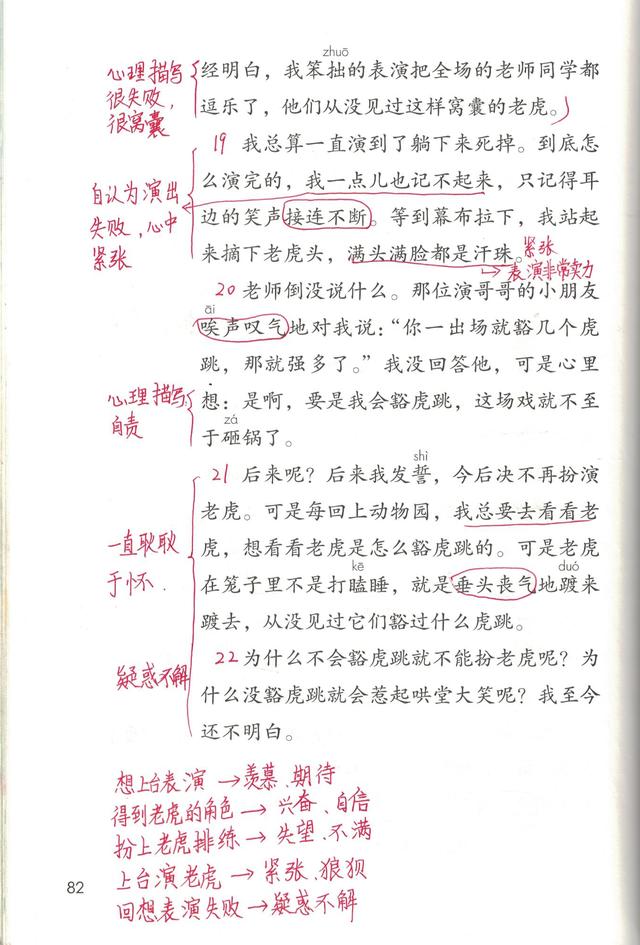 zhuō
心理描写
很失败,
很窝囊
经明白，我笨拙的表演把全场的老师同学都
逗乐了，他们从没见过这样窝囊的老虎。
19 我总算一直演到了躺下来死掉。到底怎
么演完的，我一点儿也记不起来，只记得耳
边的笑声接连不断。等到幕布拉下，我站起
来摘下老虎头，满头满脸都是汗珠。紧张
→表演非常卖力
自认为演出
失败，心中
紧张
20 老师倒没说什么。那位演哥哥的小朋友
āi
唉声叹气地对我说：“你一出场就豁几个虎
跳，那就强多了。”我没回答他，可是心里
想：是啊，要是我会豁虎跳，这场戏就不至
zá
于砸锅了。
心理描写
自责
shì
21 后来呢？后来我发誓，今后决不再扮演
老虎。可是每回上动物园，我总要去看看老
虎，想看看老虎是怎么豁虎跳的。可是老虎
kē duó
在笼子里不是打瞌睡，就是垂头丧气地踱来
踱去，从没见过它们豁过什么虎跳。
一直耿耿
于怀.
22 为什么不会豁虎跳就不能扮老虎呢？为
什么没豁虎跳就会惹起哄堂大笑呢？我至今
还不明白。
疑惑不解
想上台表演→羡慕、期待
得到老虎的角色→兴奋、自信
扮上老虎排练→失望、不满
上台演老虎→紧张、狼狈
回想表演失败→疑惑不解
82